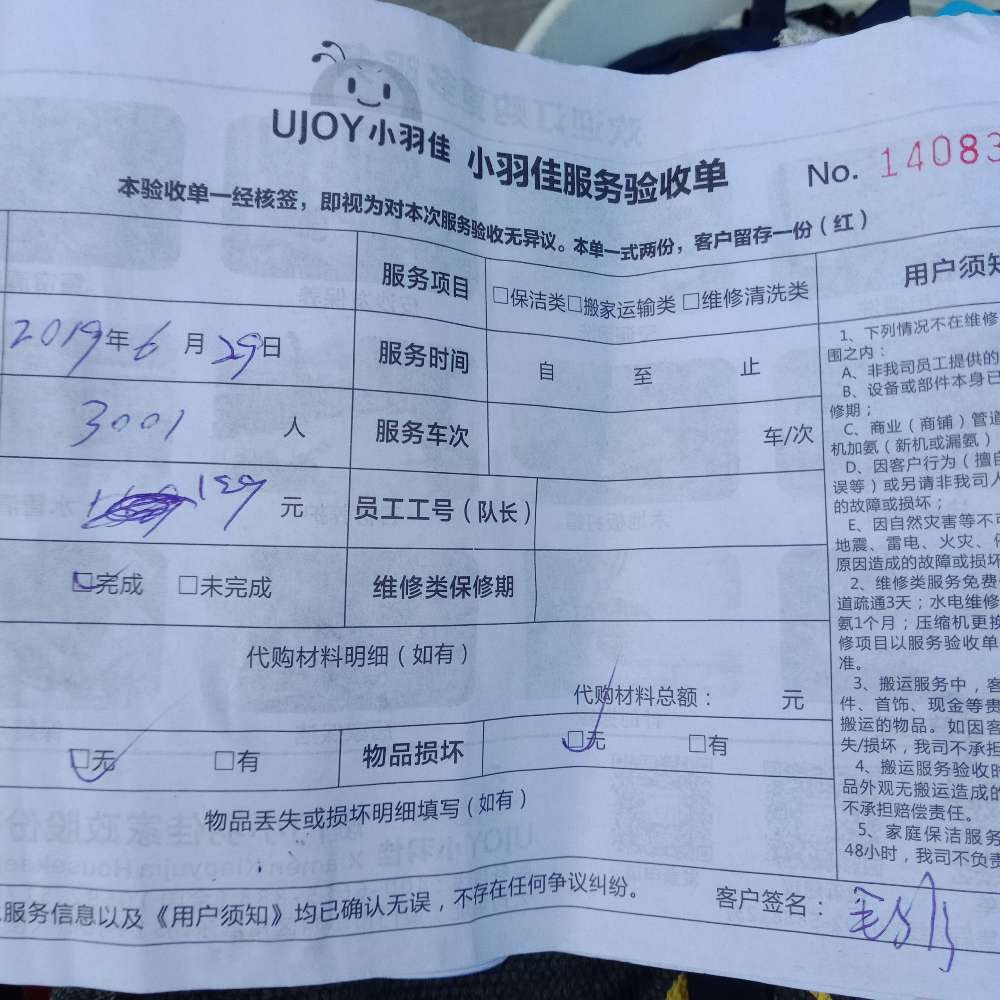 UJOY小羽佳
小羽佳服务验收单
No. 14083
本验收单一经核签，即视为对本次服务验收无异议。本单一式两份，客户留存一份（红）
服务项目 □保洁类□搬家运输类 □维修清洗类
2019年6月29日 服务时间 自 至 止
3001 人 服务车次 车/次
元 员工工号（队长）
□完成 □未完成 维修类保修期
代购材料明细（如有）
代购材料总额： 元
□无 □有 物品损坏 □无 □有
物品丢失或损坏明细填写（如有）
服务信息以及《用户须知》均已确认无误，不存在任何争议纠纷。 客户签名：
用户须知
1、下列情况不在维修
围之内：
A、非我司员工提供的
B、设备或部件本身已
修期；
C、商业（商铺）管道
机加氨（新机或漏氨）
D、因客户行为（擅自
误等）或另请非我司人
的故障或损坏；
E、因自然灾害等不可
地震、雷电、火灾、
原因造成的故障或损坏
2、维修类服务免费
道疏通3天；水电维修
氨1个月；压缩机更换
修项目以服务验收单
准。
3、搬运服务中，客
件、首饰、现金等贵
搬运的物品。如因客
失/损坏，我司不承担
4、搬运服务验收时
品外观无搬运造成的
不承担赔偿责任。
5、家庭保洁服务
48小时，我司不负责